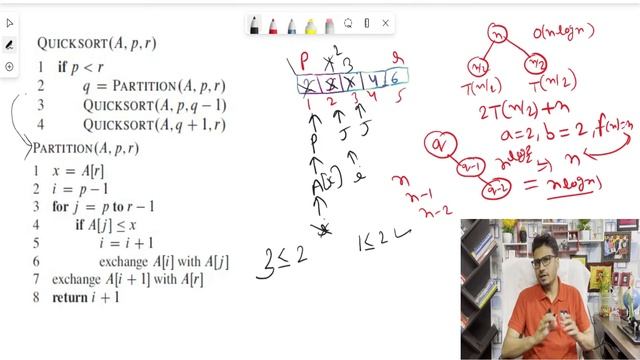 QUICKSORT(A, p, r)
1 if p < r
2 q = PARTITION(A, p, r)
3 QUICKSORT(A, p, q − 1)
4 QUICKSORT(A, q + 1, r)
PARTITION(A, p, r)
1 x = A[r]
2 i = p − 1
3 for j = p to r − 1
4 if A[j] ≤ x
5 i = i + 1
6 exchange A[i] with A[j]
7 exchange A[i + 1] with A[r]
8 return i + 1
P 2 3 r
4 6
1 2 3 4 5
P J J
A[i] i
3 ≤ 2 1 ≤ 2
n
n-1
n-2
n O(nlogn)
n/2 n/2
T(n/2) T(n/2)
2T(n/2) + n
a=2, b=2, f(n)=n
q
q-1 ⇒ n
q-2 = nlogn